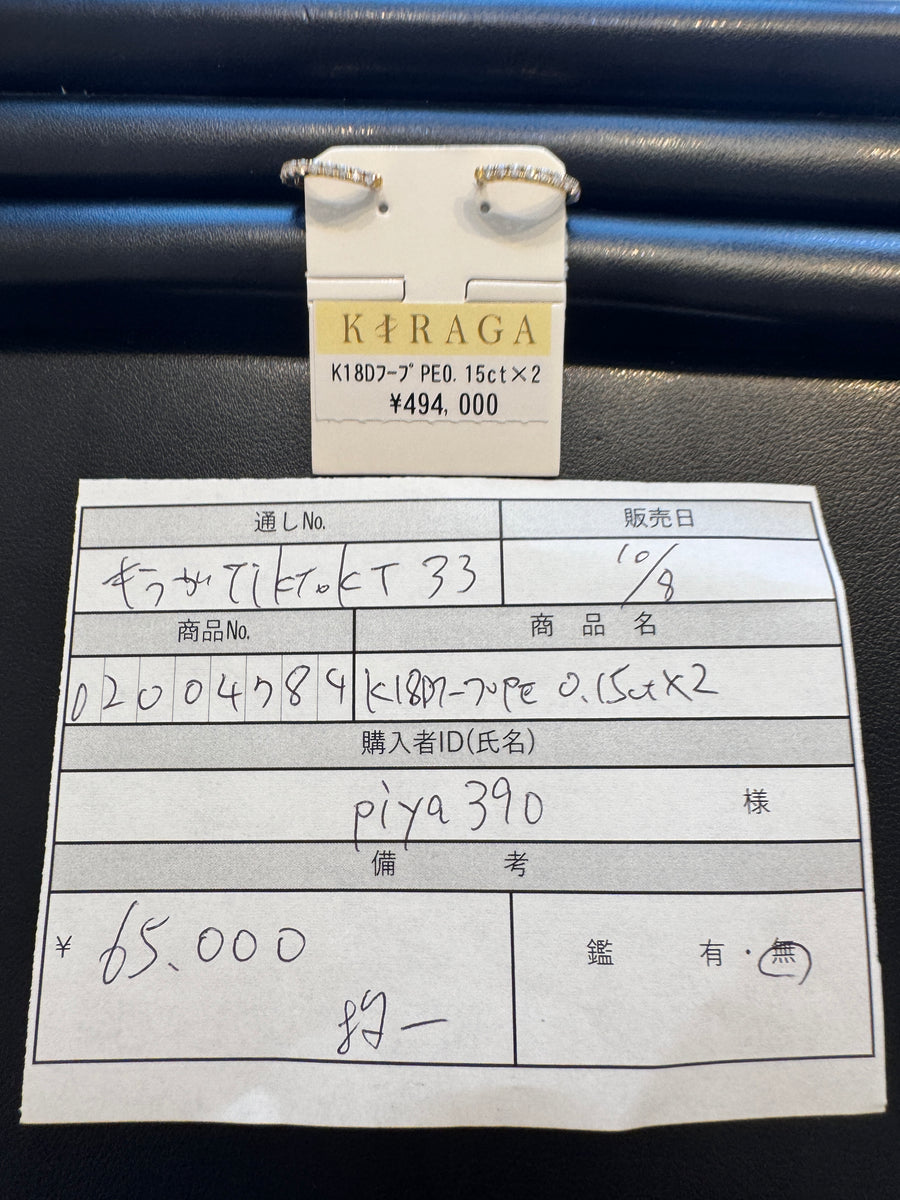 KIRAGA
K18Dフープ PE0.15ct×2
¥494,000
通しNo.
販売日
きらがTikTokKT 33
10/8
商品No.
商品名
K18Dフープ PE 0.15ct×2
購入者ID(氏名)
piya390 様
備考
¥ 65.000
鑑 有・無